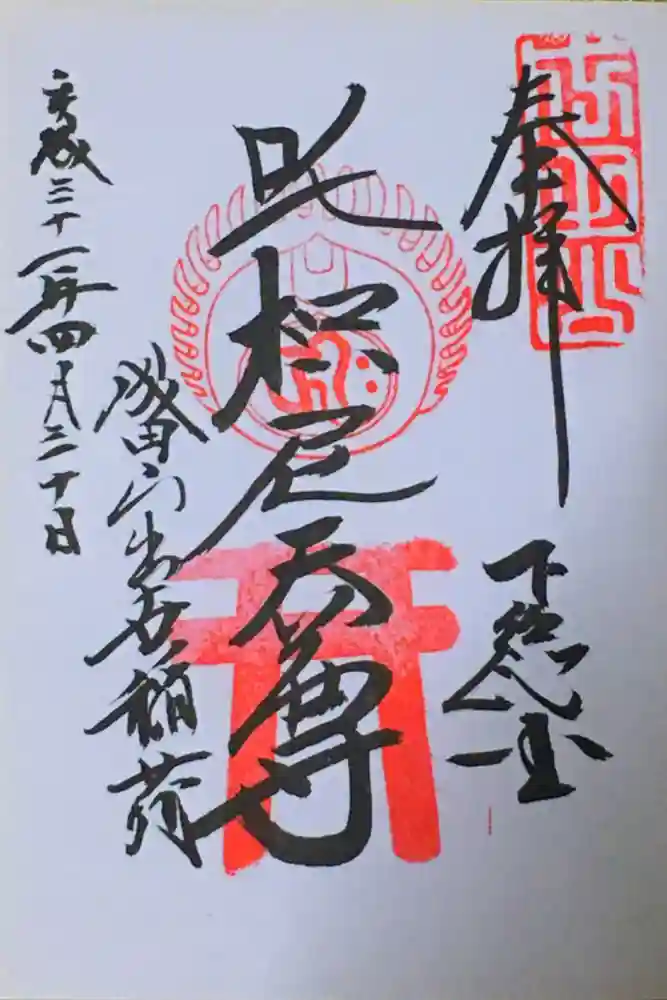 奉拝
下総
吒枳尼天尊
成田山出世稲荷
平成三十一年四月二十日